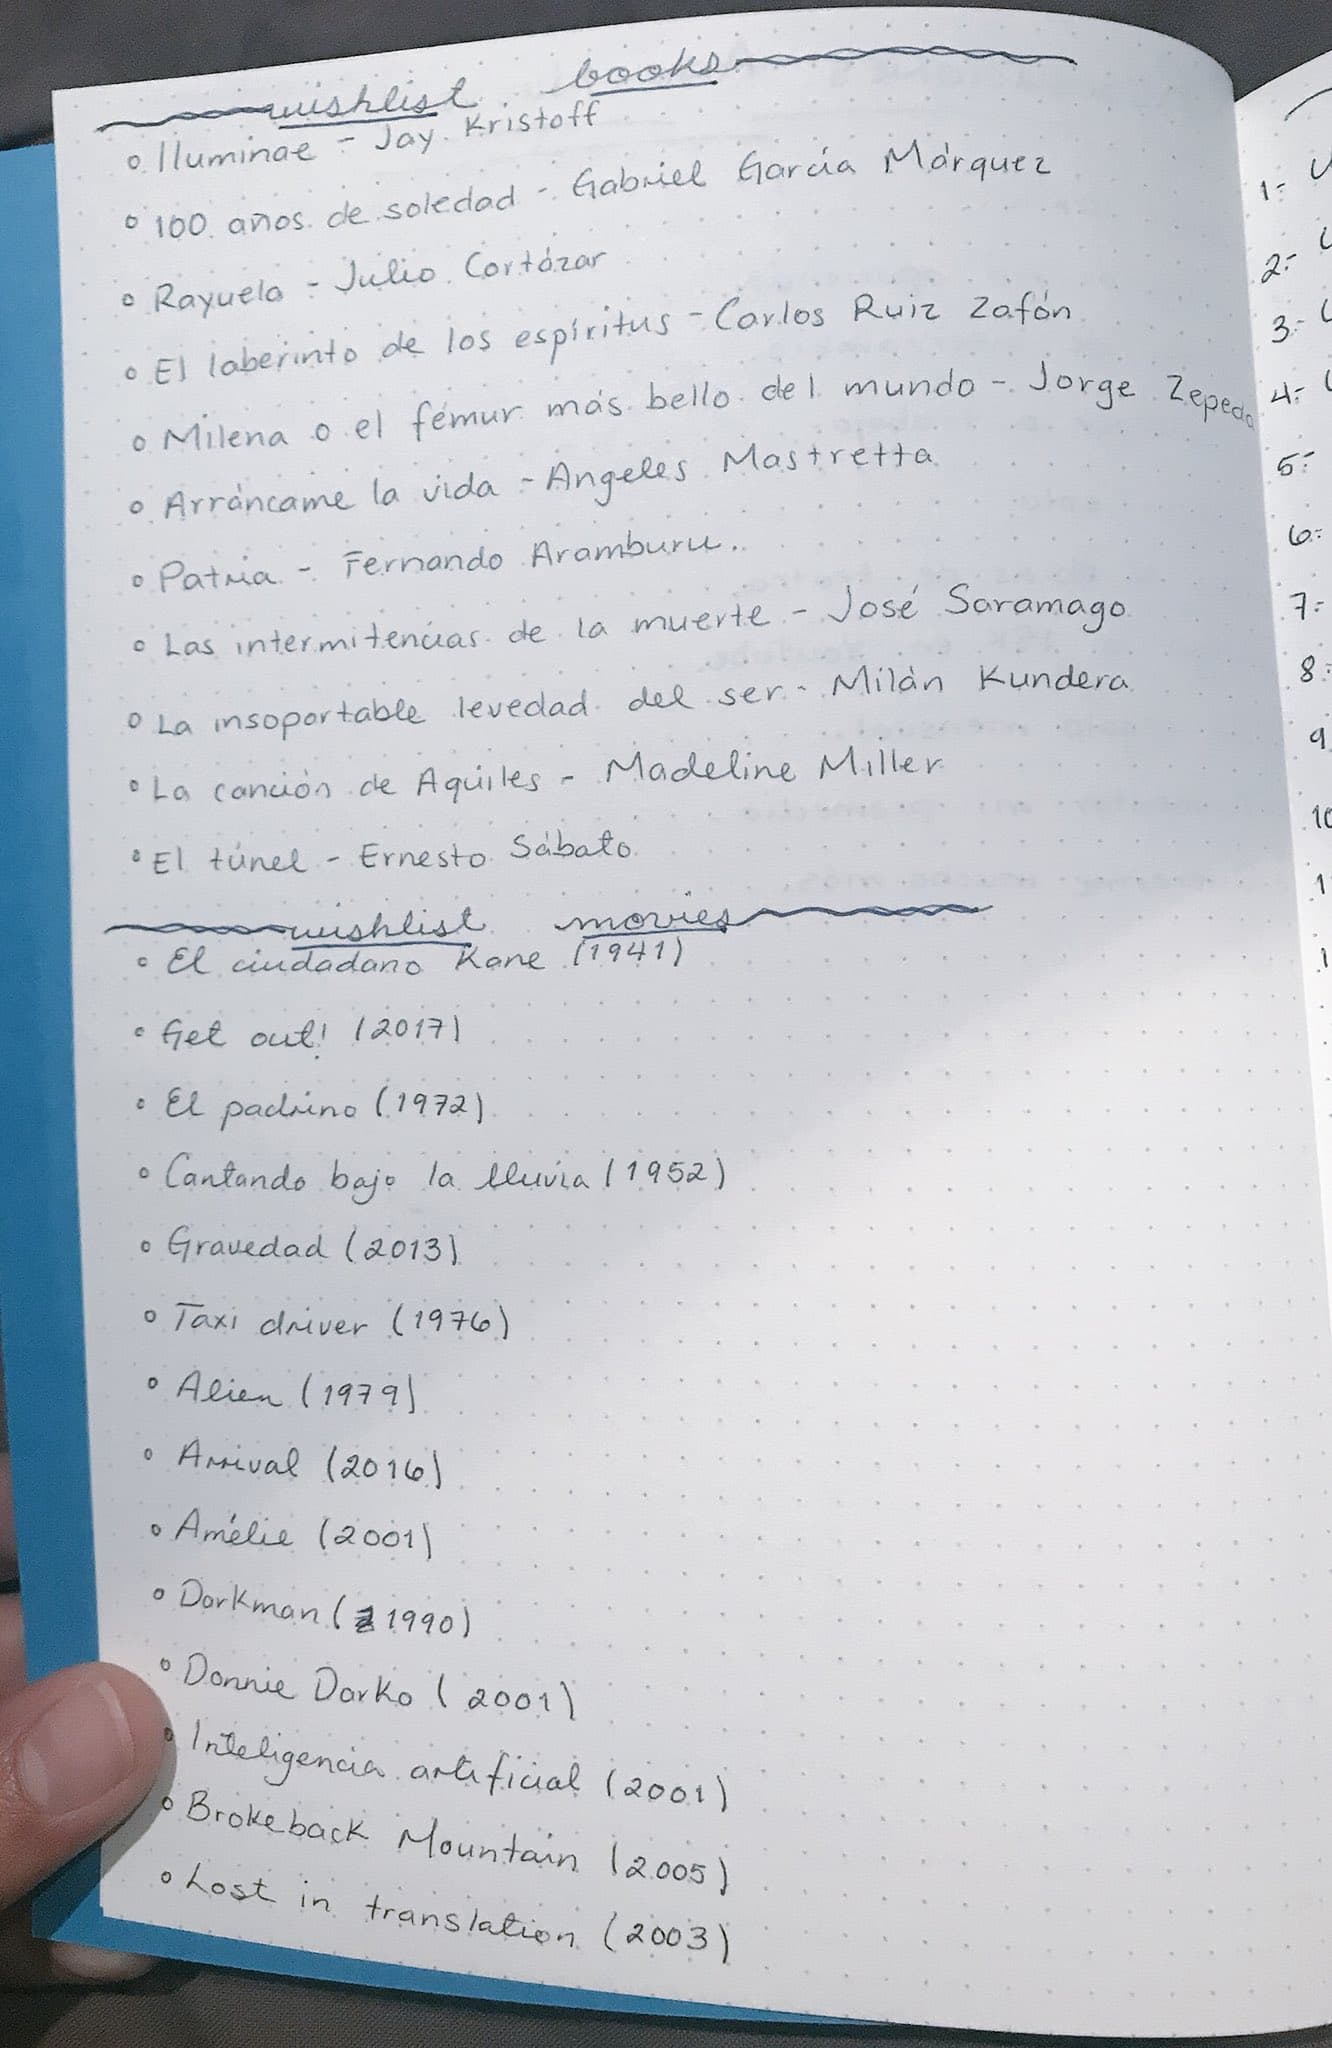 wishlist books
Iluminae - Jay Kristoff
100 años de soledad - Gabriel García Márquez
Rayuela - Julio Cortázar
El laberinto de los espíritus - Carlos Ruiz Zafón
Milena o el fémur más bello del mundo - Jorge Zepeda
Arráncame la vida - Angeles Mastretta
Patria - Fernando Aramburu.
Las intermitencias de la muerte - José Saramago
La insoportable levedad del ser - Milán Kundera
La canción de Aquiles - Madeline Miller
El túnel - Ernesto Sábato
wishlist movies
El ciudadano Kane (1941)
Get out! (2017)
El padrino (1972)
Cantando bajo la lluvia (1952)
Gravedad (2013)
Taxi driver (1976)
Alien (1979)
Arrival (2016)
Amélie (2001)
Darkman (1990)
Donnie Darko (2001)
Inteligencia artificial (2001)
Brokeback Mountain (2005)
Lost in translation (2003)
1-
2-
3-
4-
5-
6-
7-
8-
9
10